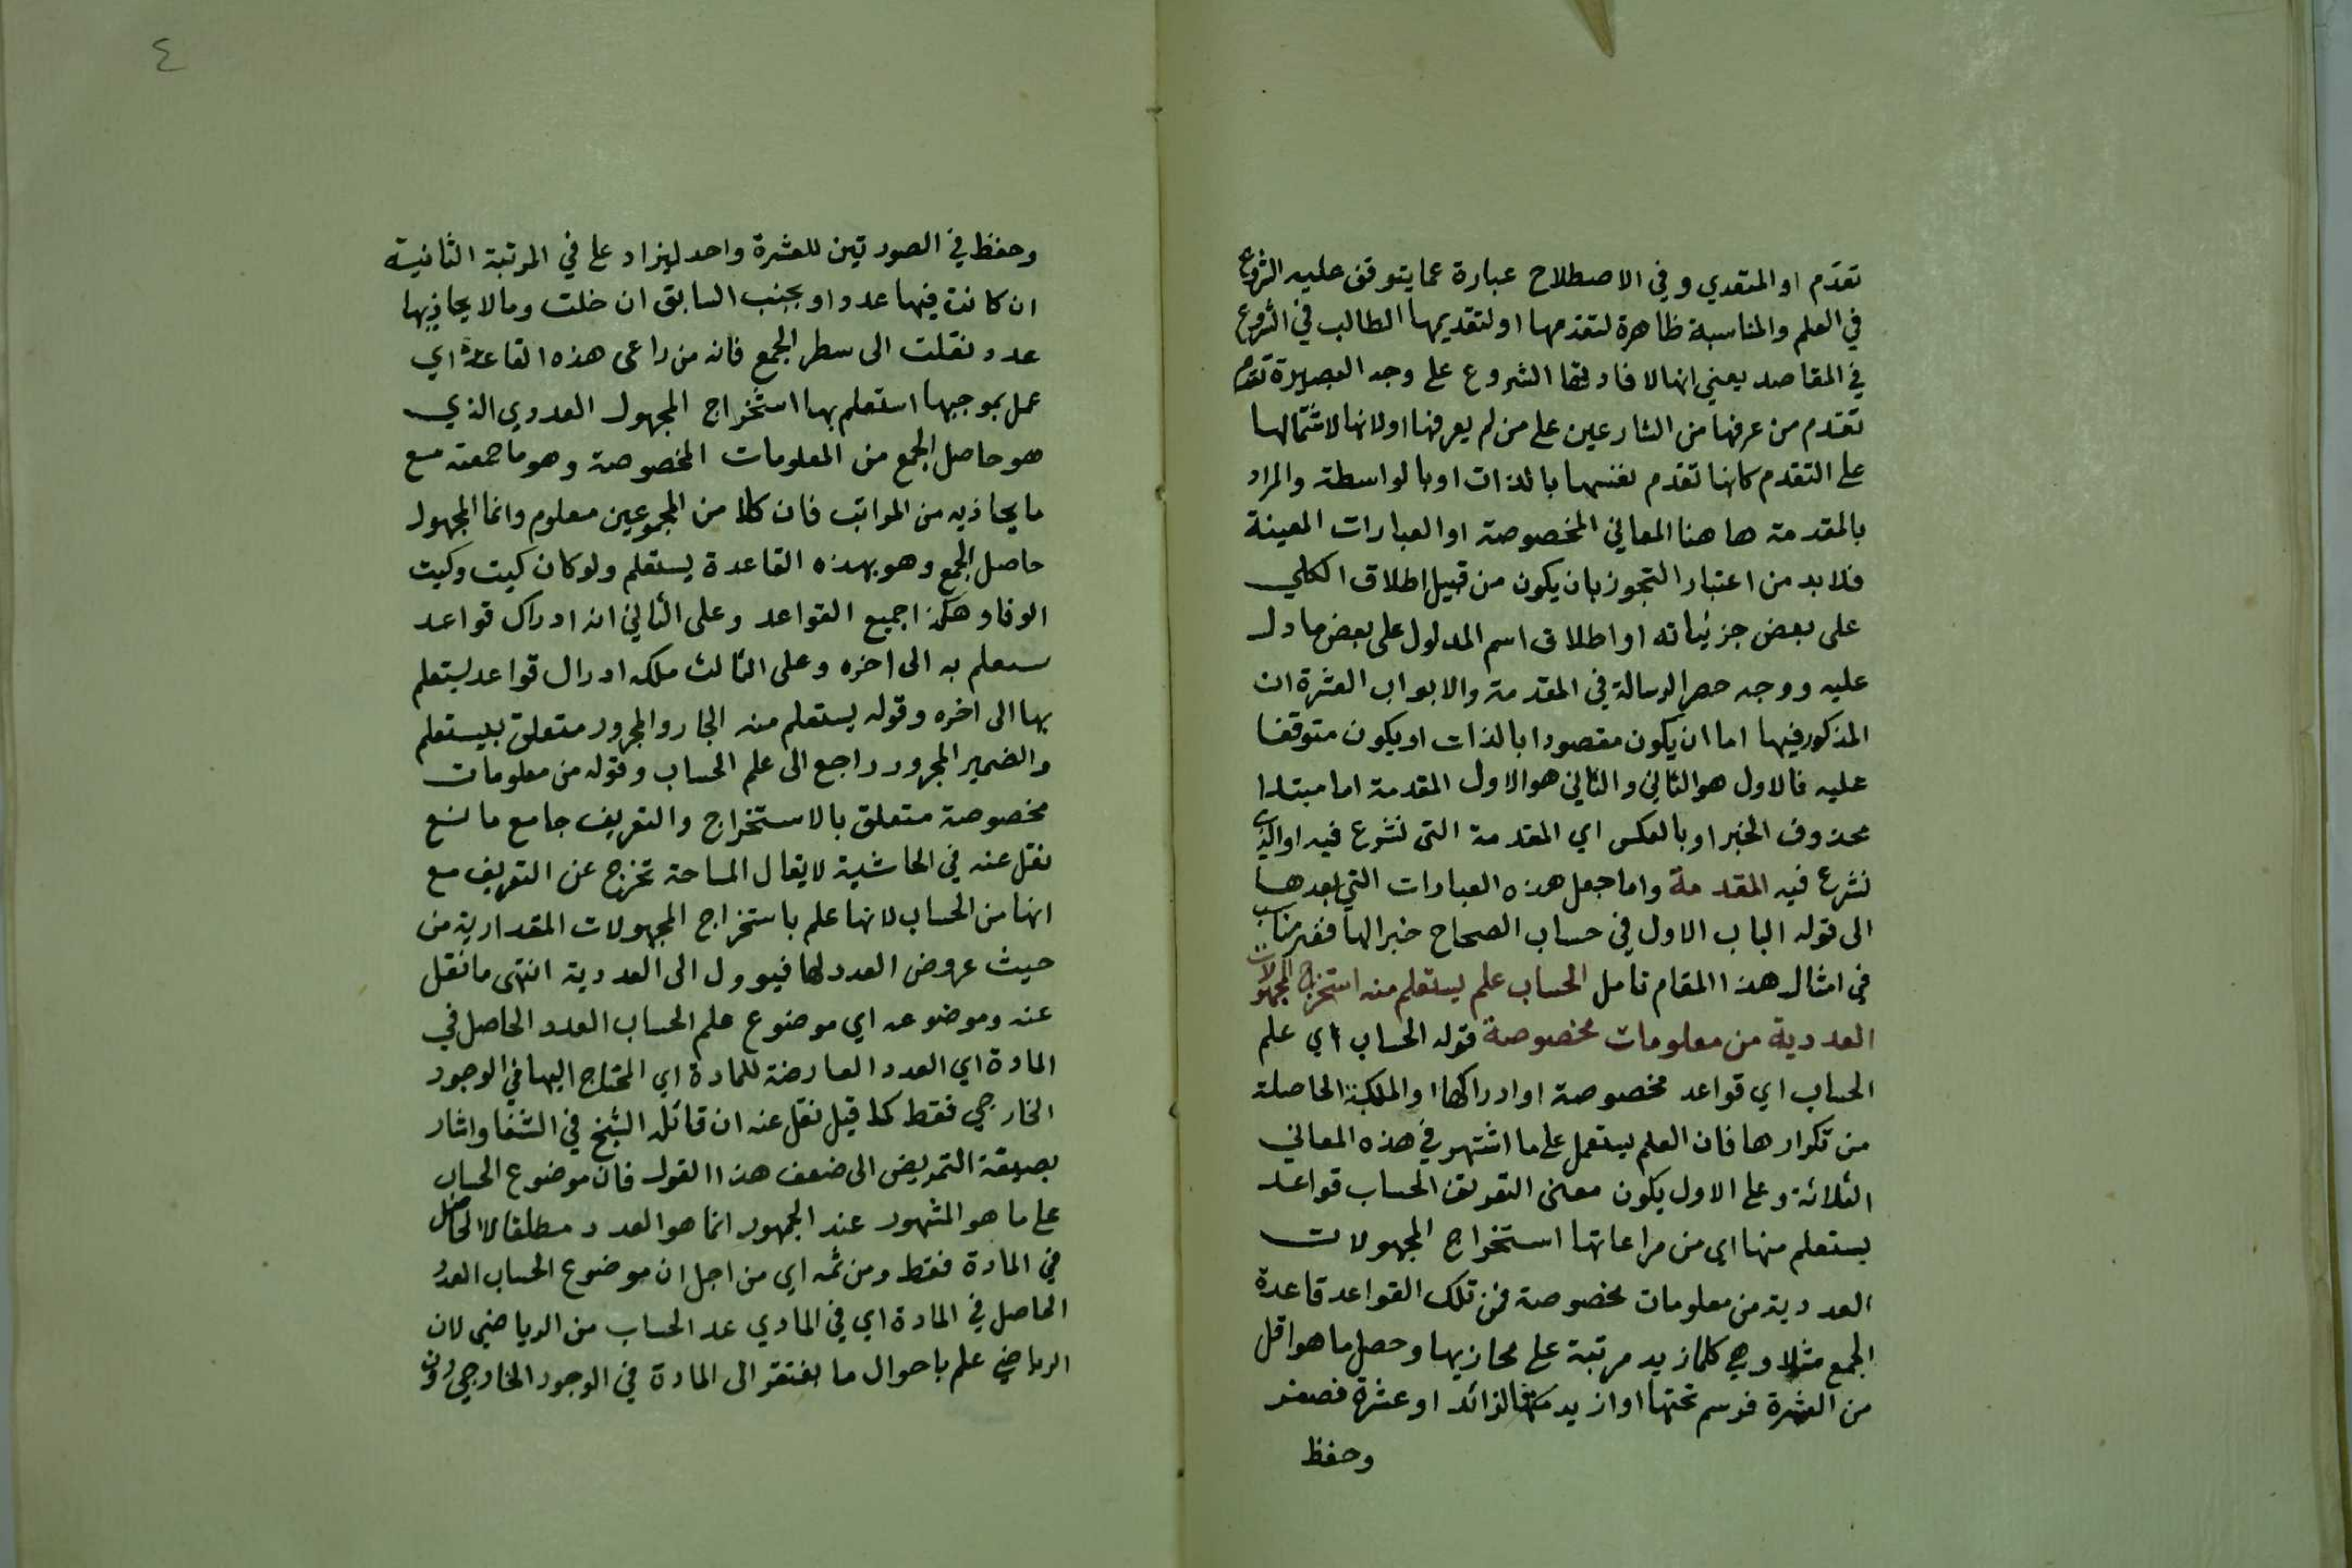 تقدم او المتعدي وفي الاصطلاح عبارة عما يتوقف عليه الشروع
في العلم والمناسبة ظاهرة لتقدمها او لتقديمها الطالب في الشروع
في المقاصد يعني انها لافادتها الشروع على وجه البصيرة تقدم
تقدم من عرفها من الشارعين على من لم يعرفها او لانها لاشتمالها
على التقدم كانها تقدم نفسها بالذات او بالواسطة والمراد
بالمقدمة ها هنا المعاني المخصوصة او العبارات المعينة
فلا بد من اعتبار التجوز بان يكون من قبيل اطلاق الكلي
على بعض جزئياته او اطلاق اسم المدلول على بعض ما دل
عليه ووجه حصر الرسالة في المقدمة والابواب العشرة ان
المذكور فيها اما ان يكون مقصودا بالذات او يكون متوقفا
عليه فالاول هو الثاني والثاني هو الاول المقدمة اما مبتدا
محذوف الخبر او بالعكس اي المقدمة التي نشرع فيه او الذي
نشرع فيه المقدمة واما جعل هذه العبارات التي بعدها
الى قوله الباب الاول في حساب الصحاح خبر الها فغير مناسب
في امثال هذا المقام تامل الحساب علم يستعلم منه استخراج المجهولات
العددية من معلومات مخصوصة قوله الحساب اي علم
الحساب اي قواعد مخصوصة او ادراكها او الملكة الحاصلة
من تكرارها فان العلم يستعمل على ما اشتهر في هذه المعاني
الثلاثة وعلى الاول يكون معنى التعريف الحساب قواعد
يستعلم منها اي من مراعاتها استخراج المجهولات
العددية من معلومات مخصوصة فمن تلك القواعد قاعدة
الجمع مثلا وهي كلما زيد مرتبة على محاذيها وحصل ما هو اقل
من العشرة فرسم تحتها او ازيد فالزائد او عشرة فصفر
وحفظ
٤
وحفظ في الصورتين للعشرة واحد ليزاد على في المرتبة الثانية
ان كانت فيها عدد او بجنب السابق ان خلت وما لا يحاذيها
عدد نقلت الى سطر الجمع فانه من راعى هذه القاعدة اي
عمل بموجبها استعلم بها استخراج المجهول العددي الذي
هو حاصل الجمع من المعلومات المخصوصة وهو ما جمعته مع
ما يحاذيه من المراتب فان كلا من المجموعين معلوم وانما المجهول
حاصل الجمع وهو بهذه القاعدة يستعلم ولو كان كيت وكيت
الوفا وهكذا جميع القواعد وعلى الثاني انه ادراك قواعد
ستعلم به الى اخره وعلى الثالث ملكه ادرال قواعد يستعلم
بها الى اخره وقوله يستعلم منه الجار والمجرور متعلق بيستعلم
والضمير المجرور راجع الى علم الحساب وقوله من معلومات
مخصوصة متعلق بالاستخراج والتعريف جامع مانع
نقل عنه في الحاشية لا يقال المساحة تخرج عن التعريف مع
انها من الحساب لانها علم باستخراج المجهولات المقدارية من
حيث عروض العدد لها فيوول الى العددية انتهى ما نقل
عنه وموضوعه اي موضوع علم الحساب العدد الحاصل في
المادة اي العدد العارضة للمادة اي المحتاج اليها في الوجود
الخارجي فقط كما قيل نقل عنه ان قائله الشيخ في الشفا واشار
بصيغة التمريض الى ضعف هذا القول فان موضوع الحساب
على ما هو المشهور عند الجمهور انما هو العدد مطلقا لا الحاصل
في المادة فقط ومن ثمه اي من اجل ان موضوع الحساب العدد
الحاصل في المادة اي في المادي عد الحساب من الرياضي لان
الرياضي علم باحوال ما يفتقر الى المادة في الوجود الخارجي دون